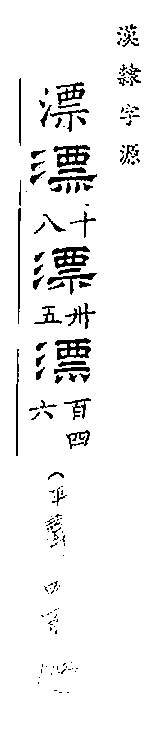 漢隸字源
漂
漂
十八
漂
卅五
漂
百四六